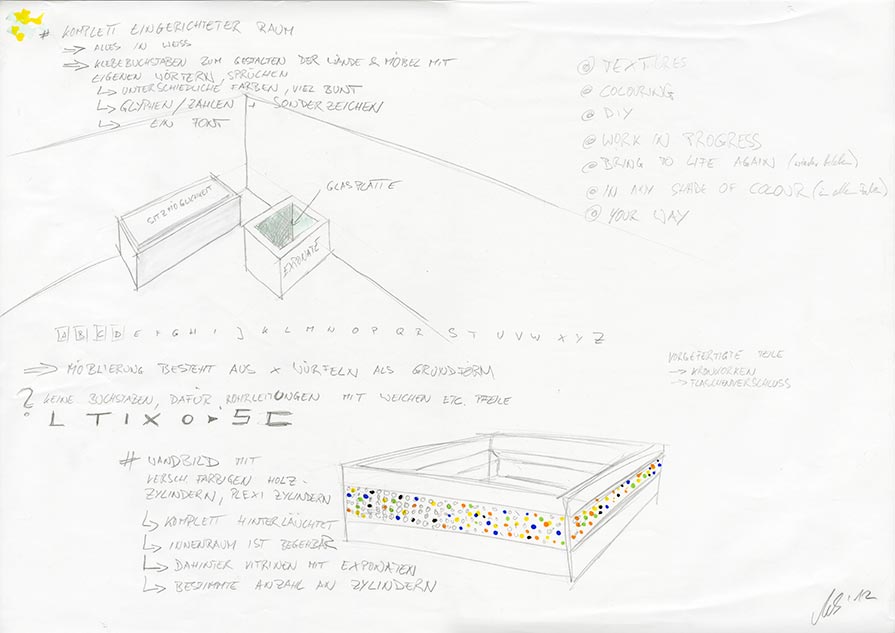 # KOMPLETT EINGERICHTETER RAUM
⇒ ALLES IN WEISS
⇒ KLEBEBUCHSTABEN ZUM GESTALTEN DER WÄNDE & MÖBEL MIT
EIGENEN WÖRTERN, SPRÜCHEN
↳ UNTERSCHIEDLICHE FARBEN, VIEL BUNT
↳ GLYPHEN / ZAHLEN + SONDERZEICHEN
↳ EIN FONT
@ TEXTURES
@ COLOURING
@ DIY
@ WORK IN PROGRESS
@ BRING TO LIFE AGAIN (wieder
@ IN ANY SHADE OF COLOUR (in allen
@ YOUR WAY
GLASPLATTE
SITZMÖGLICHKEIT
EXPONATE
A B C D E F G H I J K L M N O P Q R S T U V W X Y Z
⇒ MÖBLIERUNG BESTEHT AUS X WÜRFELN ALS GRUNDFORM
VORGEFERTIGTE TEILE
→ KRONKORKEN
→ FLASCHENVERSCHLUSS
? KEINE BUCHSTABEN, DAFÜR ROHRLEITUNGEN MIT WEICHEN ETC. PFEILE
L T I X O ▸ S C
# WANDBILD MIT
VERSCH. FARBIGEN HOLZ-
ZYLINDERN, PLEXI ZYLINDERN
↳ KOMPLETT HINTERLÄUCHTET
↳ INNENRAUM IST BEGEHBAR
↳ DAHINTER VITRINEN MIT EXPONATEN
↳ BESTIMMTE ANZAHL AN ZYLINDERN
'12